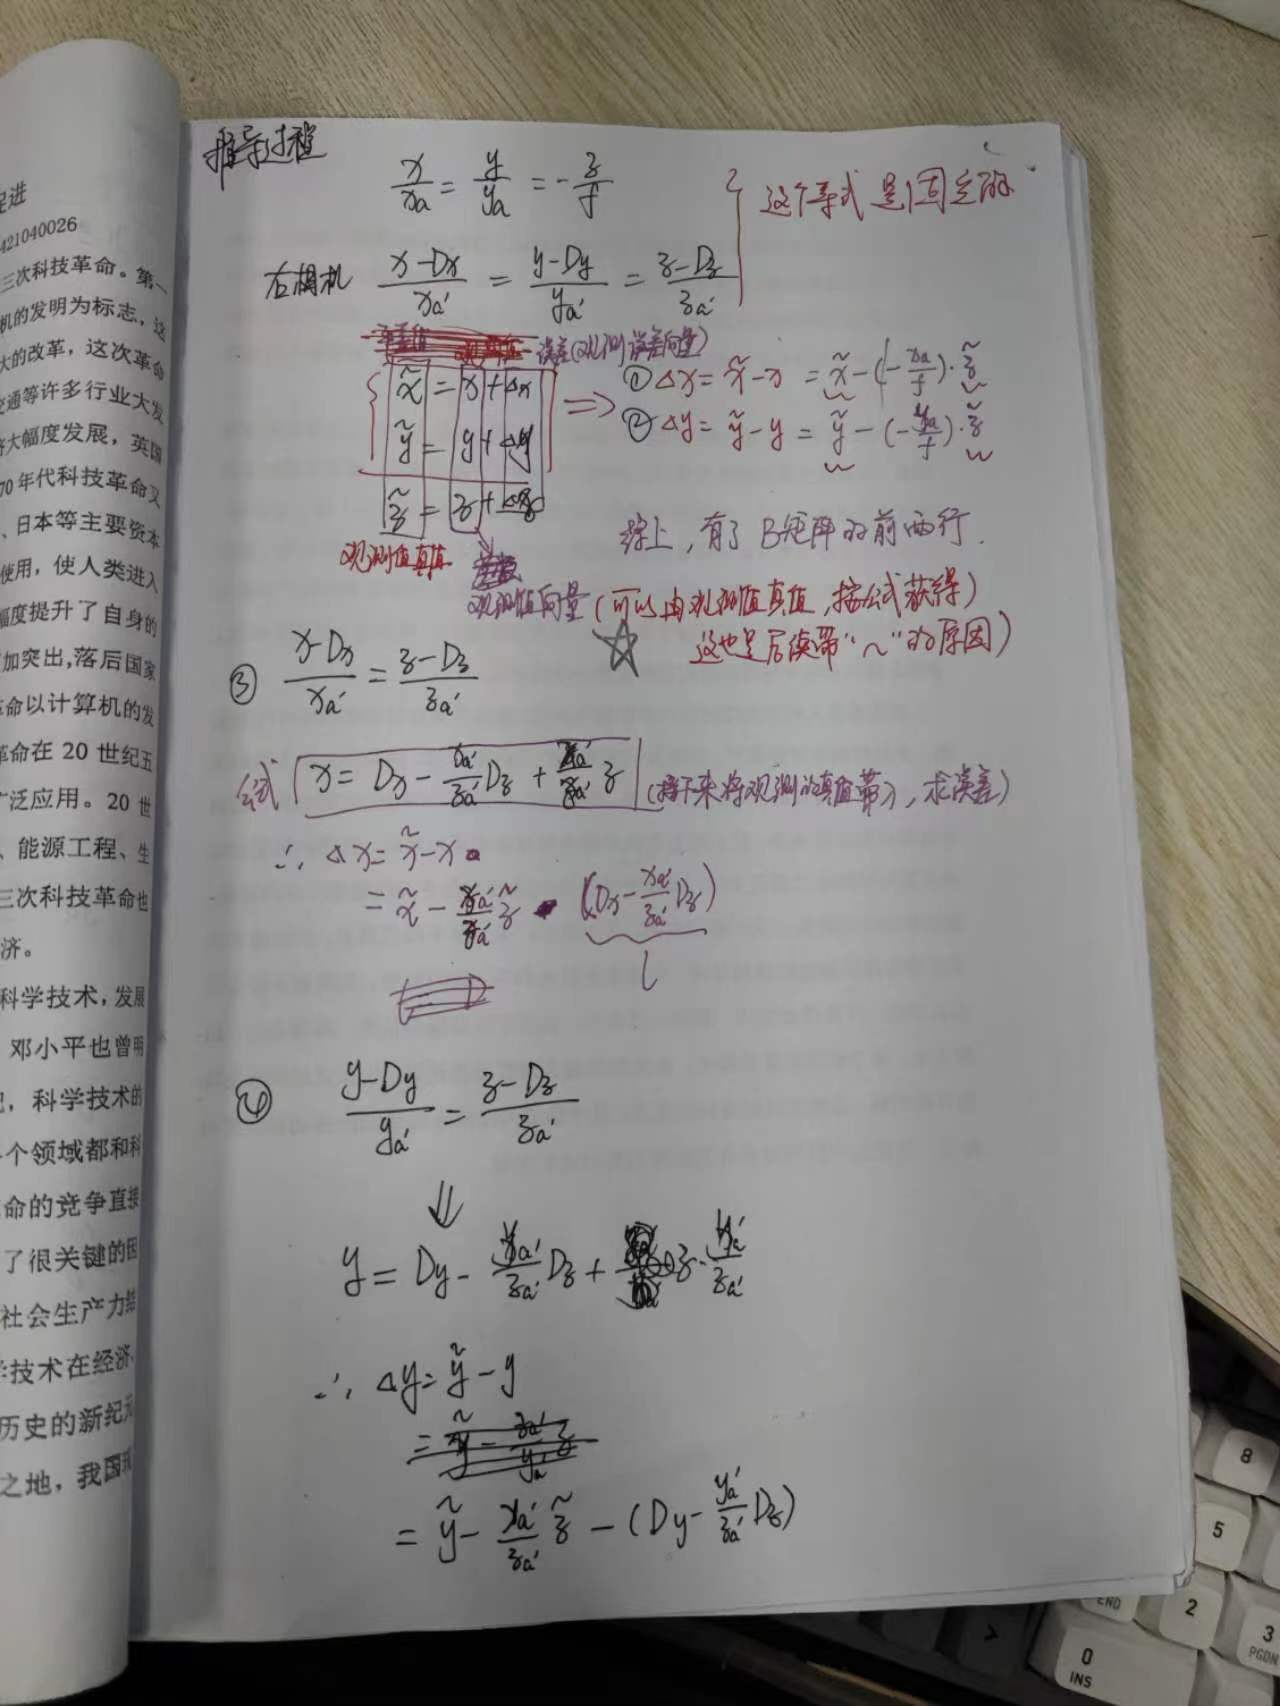 促进
421040026
三次科技革命。第一
机的发明为标志，这
大的改革，这次革命
交通等许多行业大发
大幅度发展，英国
70年代科技革命又
、日本等主要资本
使用，使人类进入
幅度提升了自身的
加突出,落后国家
革命以计算机的发
革命在 20 世纪五
广泛应用。20 世
、能源工程、生
三次科技革命也
济。
科学技术，发展
邓小平也曾明
，科学技术的
个领域都和科
命的竞争直接
了很关键的因
社会生产力结
学技术在经济、
历史的新纪元
之地，我国现
推导过程
x/xa = y/ya = -z/f
这个等式是固定的
右相机 (x-Dx)/xa' = (y-Dy)/ya' = (z-Dz)/za'
误差(观测误差向量)
x̃ = x+Δx
ỹ = y+Δy
z̃ = z+Δz
⇒ ① Δx = x̃-x = x̃-(-xa/f)·z̃
② Δy = ỹ-y = ỹ-(-ya/f)·z̃
综上，有了B矩阵的前两行.
观测值真值
观测值向量(可以由观测值真值,按公式获得)
☆ 这也是后续带“~”的原因)
③ (x-Dx)/xa' = (z-Dz)/za'
公式 x = Dx - xa'/za' Dz + xa'/za' z (接下来将观测的真值带入，求误差)
∴ Δx = x̃-x
= x̃ - xa'/za' z̃ (Dx - xa'/za' Dz)
④ (y-Dy)/ya' = (z-Dz)/za'
⇓
y = Dy - ya'/za' Dz + z·ya'/za'
∴ Δy = ỹ-y
= ỹ - xa'/za' z̃ - (Dy - ya'/za' Dz)
8
5
END
2
3
PGDN
0
INS
>